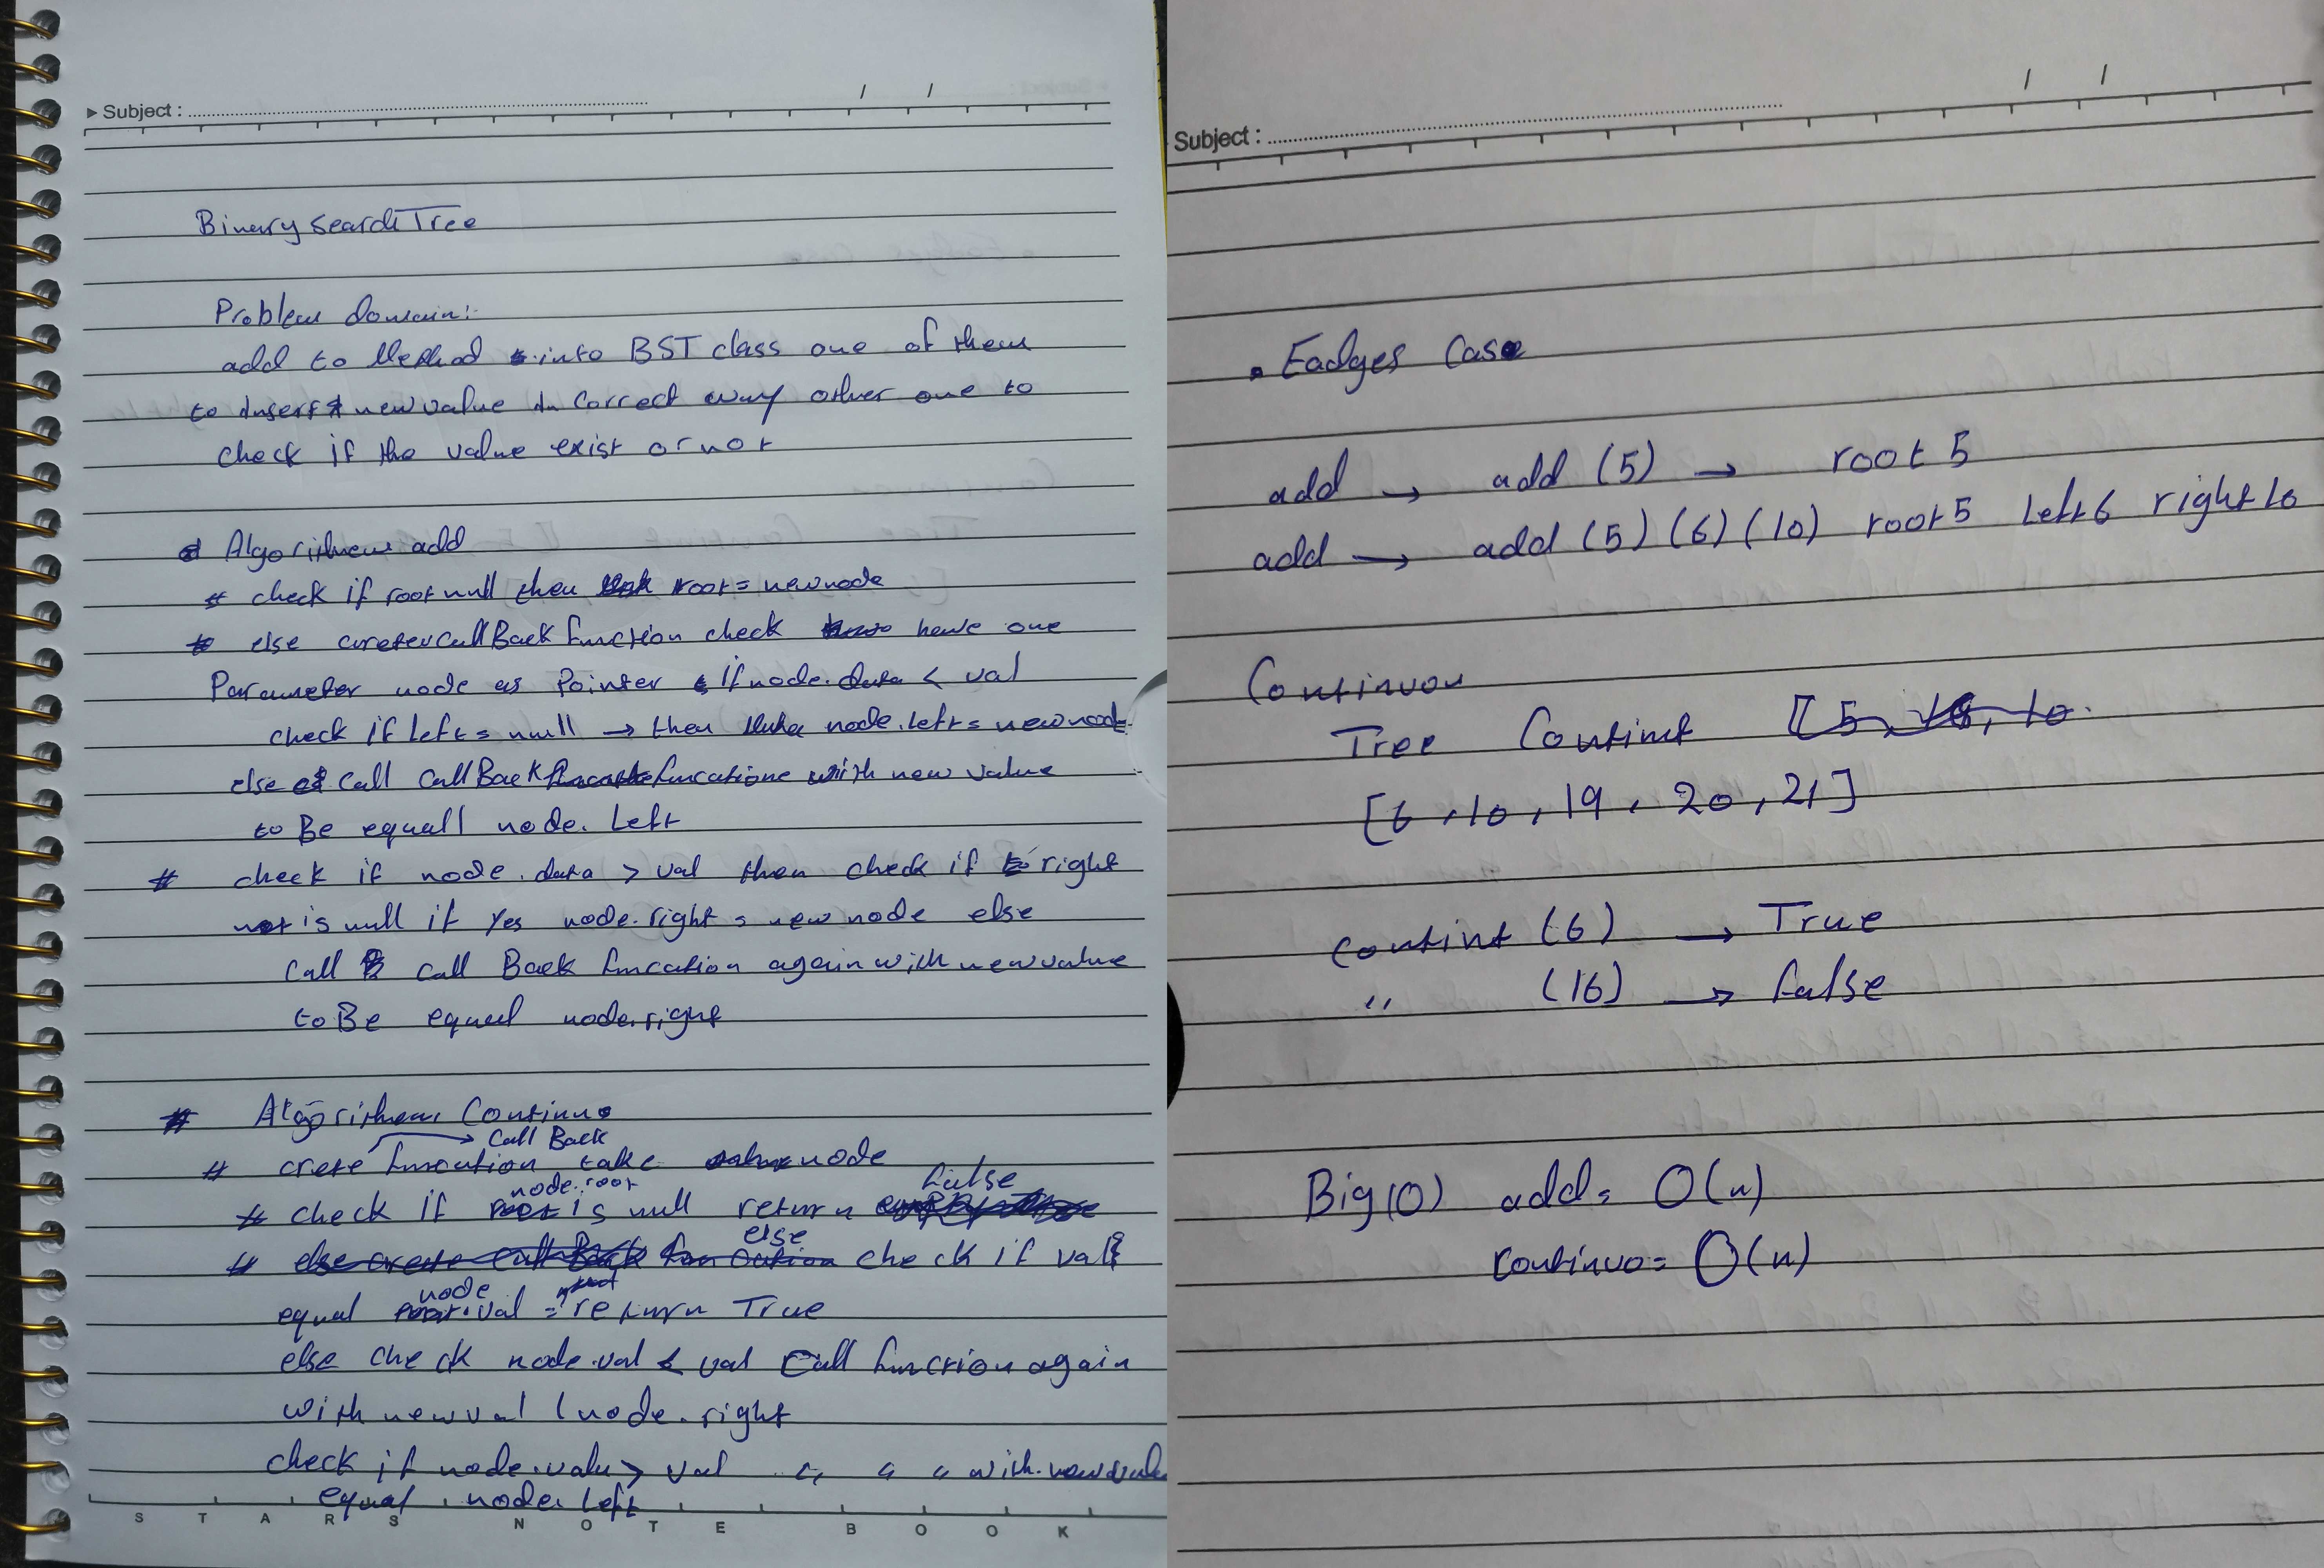 Subject :
/ /
Binary Search Tree
Problem domain:
add to Method into BST class one of them
to insert new value in correct way other one to
check if the value exist or not
Algorithem add
# check if root null then root = newnode
# else creter callBack function check have one
Parameter node as Pointer if node.data < val
check if left = null → then node.left = newnode
else call callBack funcatione with new value
to Be equall node.left
# check if node.data > val then check if right
is null if Yes node.right = new node else
call call Back funcation again with new value
to Be equal node.right
# Algorithem Continue
Call Back
# crete funcution take node
node.root false
# check if is null return
else
# check if val
node
equal .val = return True
else check node.val < val Call function again
with new val (node.right
check if node.value > val " " " with new value
equal node.left
STARS NOTE BOOK
Subject :
/ /
Eadges Case
add → add (5) → root 5
add → add (5) (6) (10) root 5 left 6 right 10
Continuou
Tree Contint [5, 10
[6, 10, 19, 20, 21]
contint (6) → True
" (16) → false
Big(O) add = O(n)
continuo = O(n)